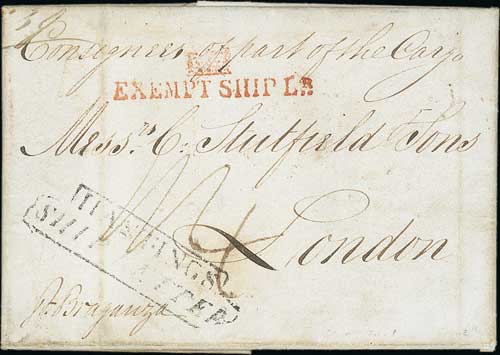 Consignees of part of the Cargo
EXEMPT SHIP LR
Messrs. C. Stutfield & Sons
London
HASTINGS
SHIP LETTER
pr. Braganza